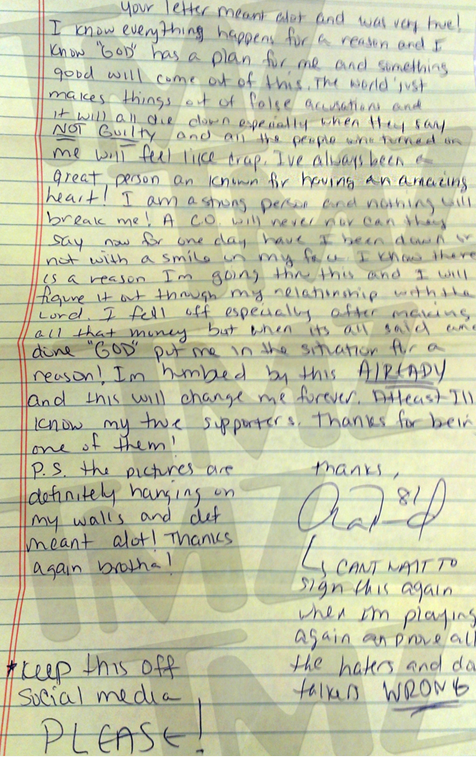 Your letter meant alot and was very true!
I know everything happens for a reason and I
know "GOD" has a plan for me and something
good will come out of this. The world just
makes things out of false accusations and
it will all die down especially when they say
NOT GUILTY and all the people who turned on
me will feel like crap. I've always been a
great person an known for having an amazing
heart! I am a strong person and nothing will
break me! A C.O. will never nor can they
say now for one day have I been down or
not with a smile on my face. I know there
is a reason Im going thru this and I will
figure it out through my relationship with the
Lord. I fell off especially after making
all that money but when its all said and
done "GOD" put me in the situation for a
reason! Im humbled by this ALREADY
and this will change me forever. Atleast Ill
know my true supporters. Thanks for bein
one of them!
P.S. the pictures are
definitely hanging on
my walls and def
meant alot! Thanks
again brotha!
thanks,
81
CANT WAIT TO
sign this again
when im playing
again an prove all
the haters and
talkers WRONG
*Keep this off
social media
PLEASE!
TMZ